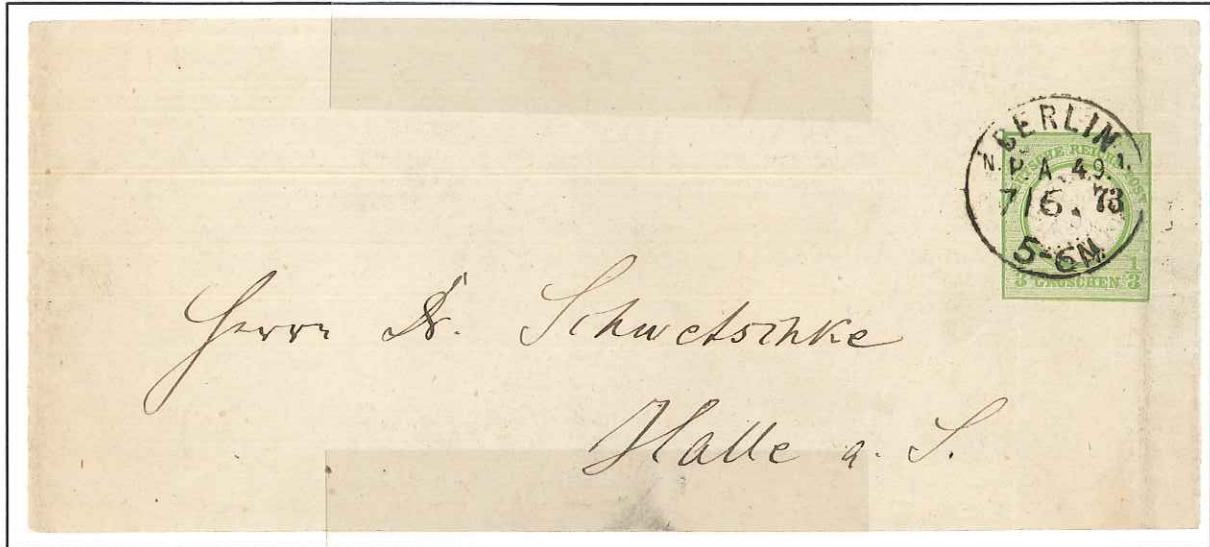 BERLIN
N. P. A. 49. 1.
7/5. 73
5-6N.
REICHS POST
1/3 GROSCHEN 1/3
Herrn Dr. Schwetschke
Halle a. S.